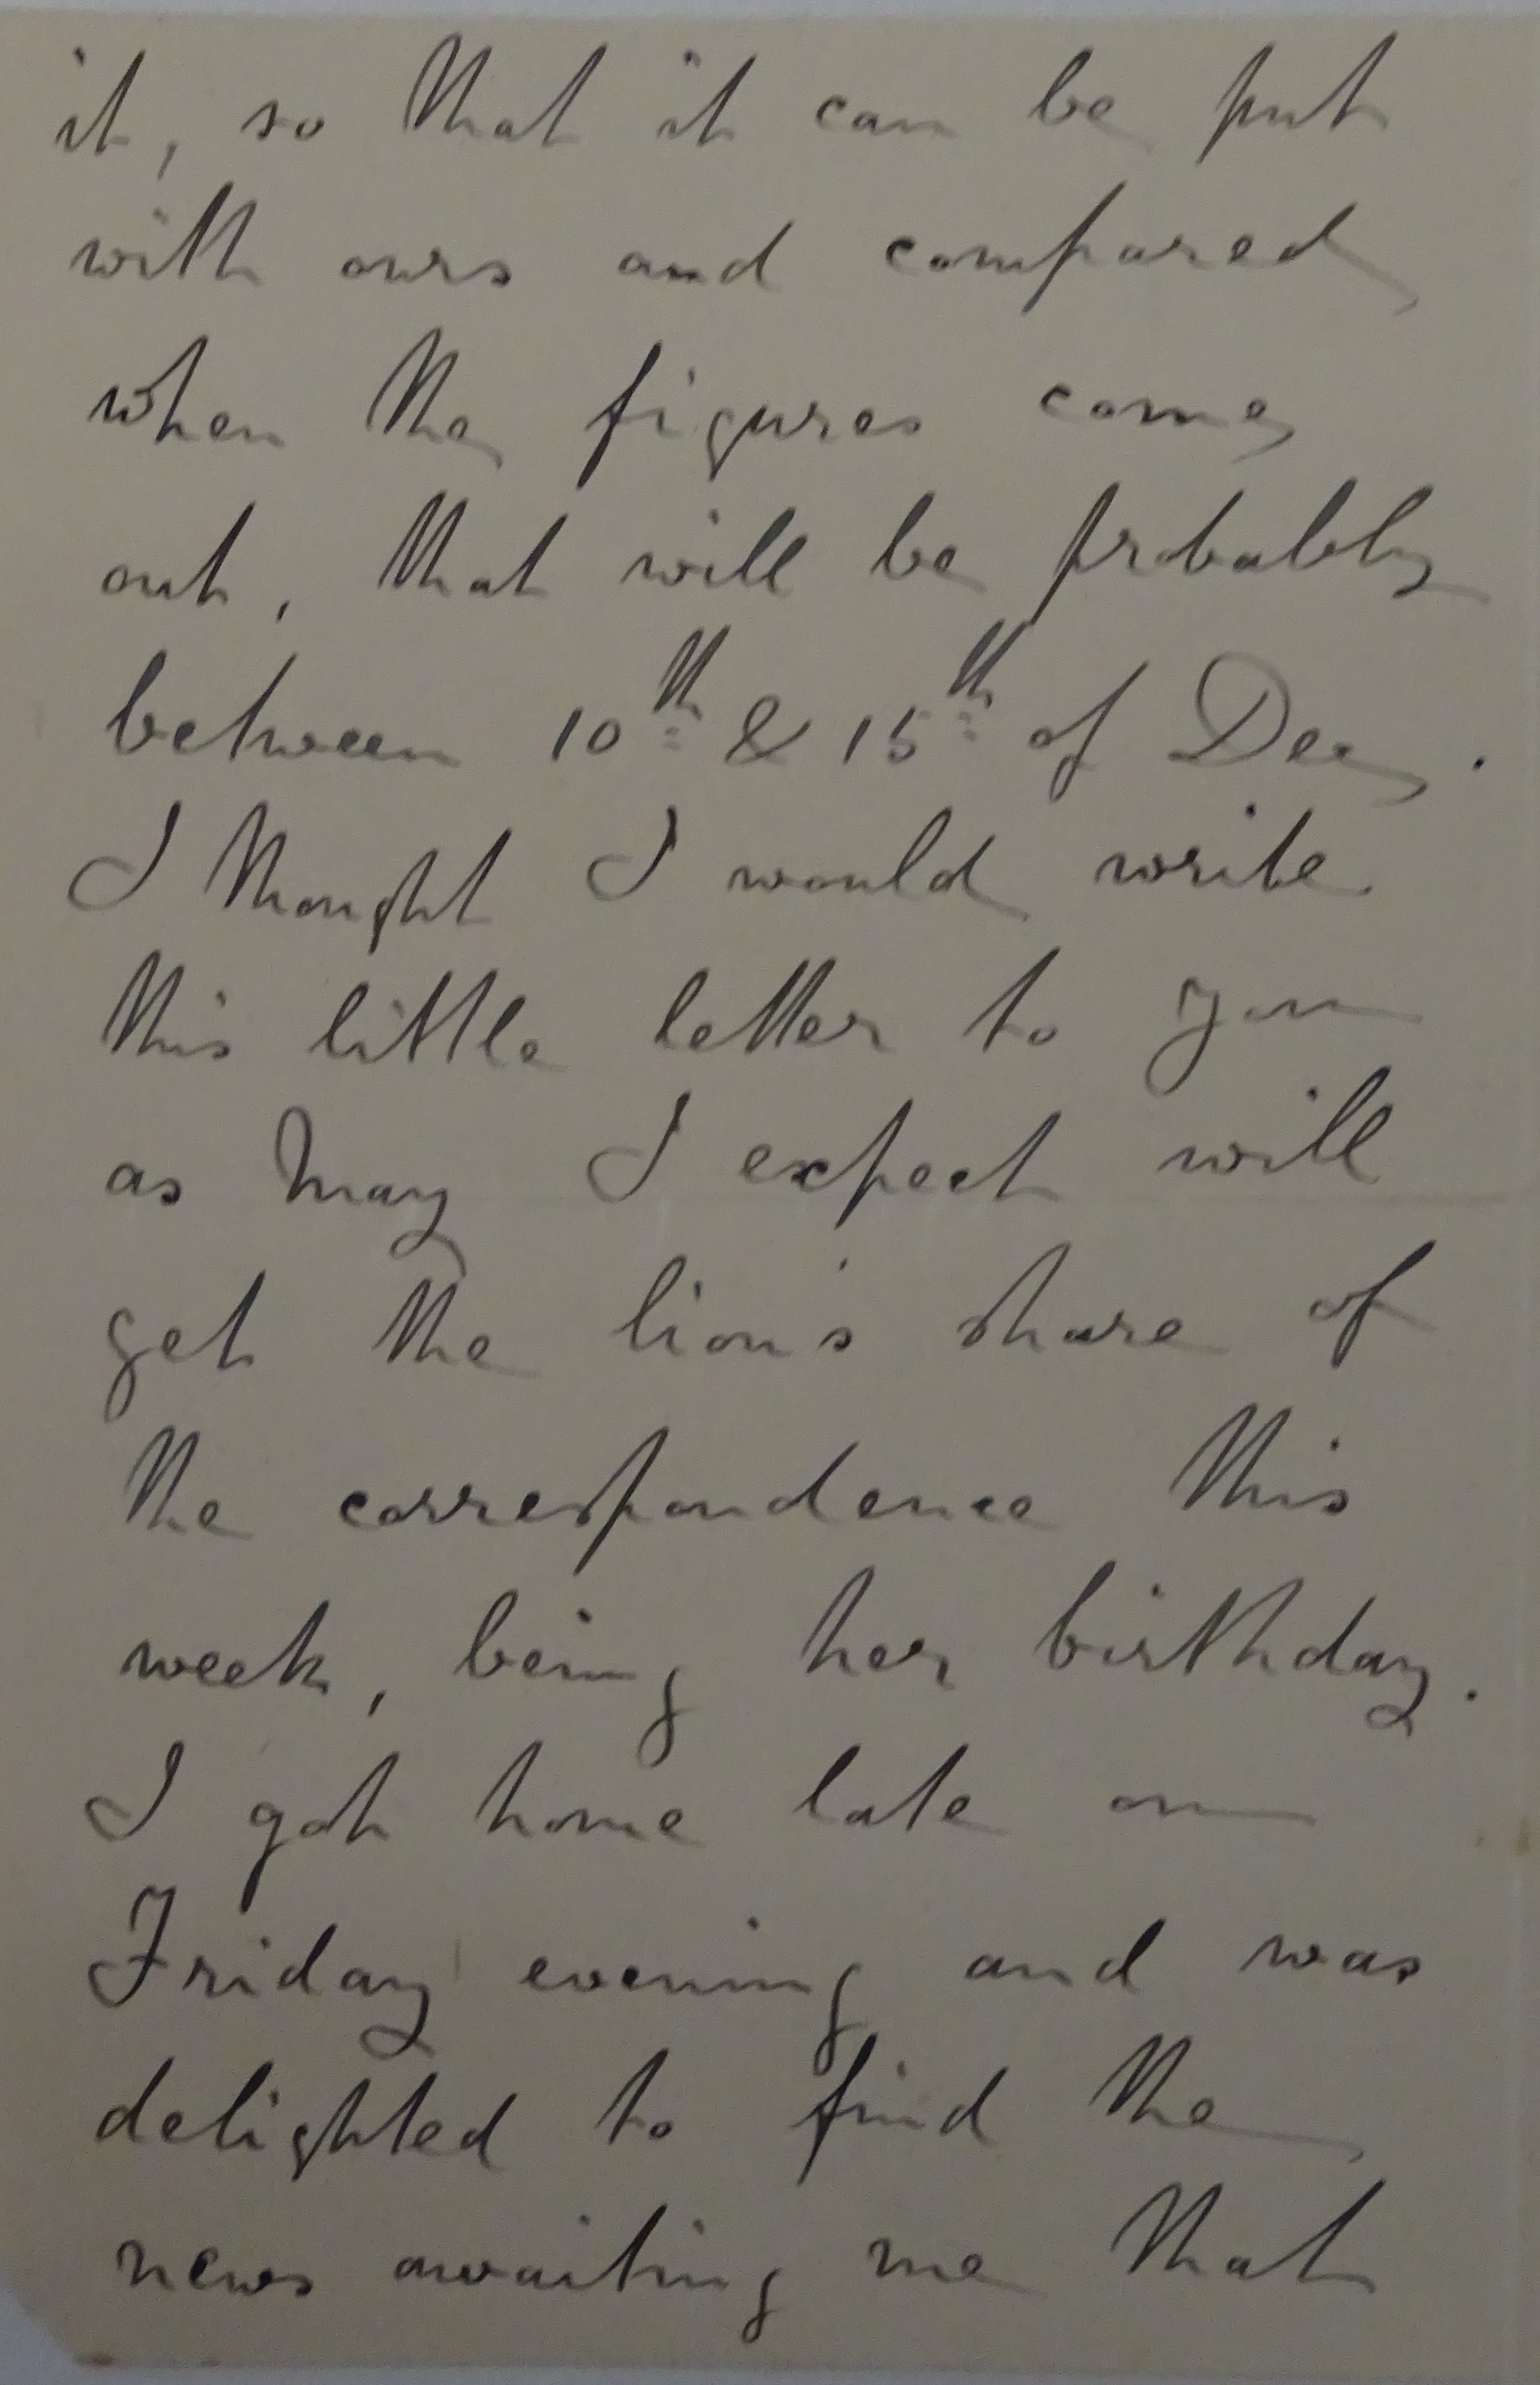 it, so that it can be put
with ours and compared
when the figures come
out, that will be probably
between 10th & 15th of Dec.
I thought I would write
this little letter to you
as May I expect will
get the lion's share of
the correspondence this
week, being her birthday.
I got home late on
Friday evening and was
delighted to find the
news awaiting me that